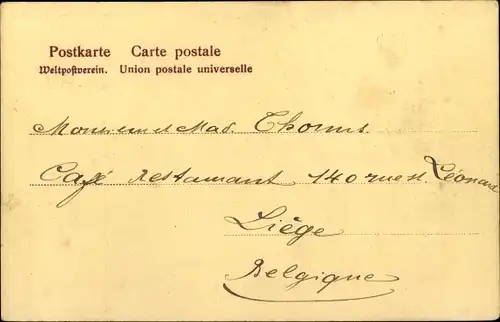 Postkarte Carte postale
Weltpostverein. Union postale universelle
Monsieur et Mad. Thonus.
Café Restaurant 140 rue st. Léonard
Liège
Belgique